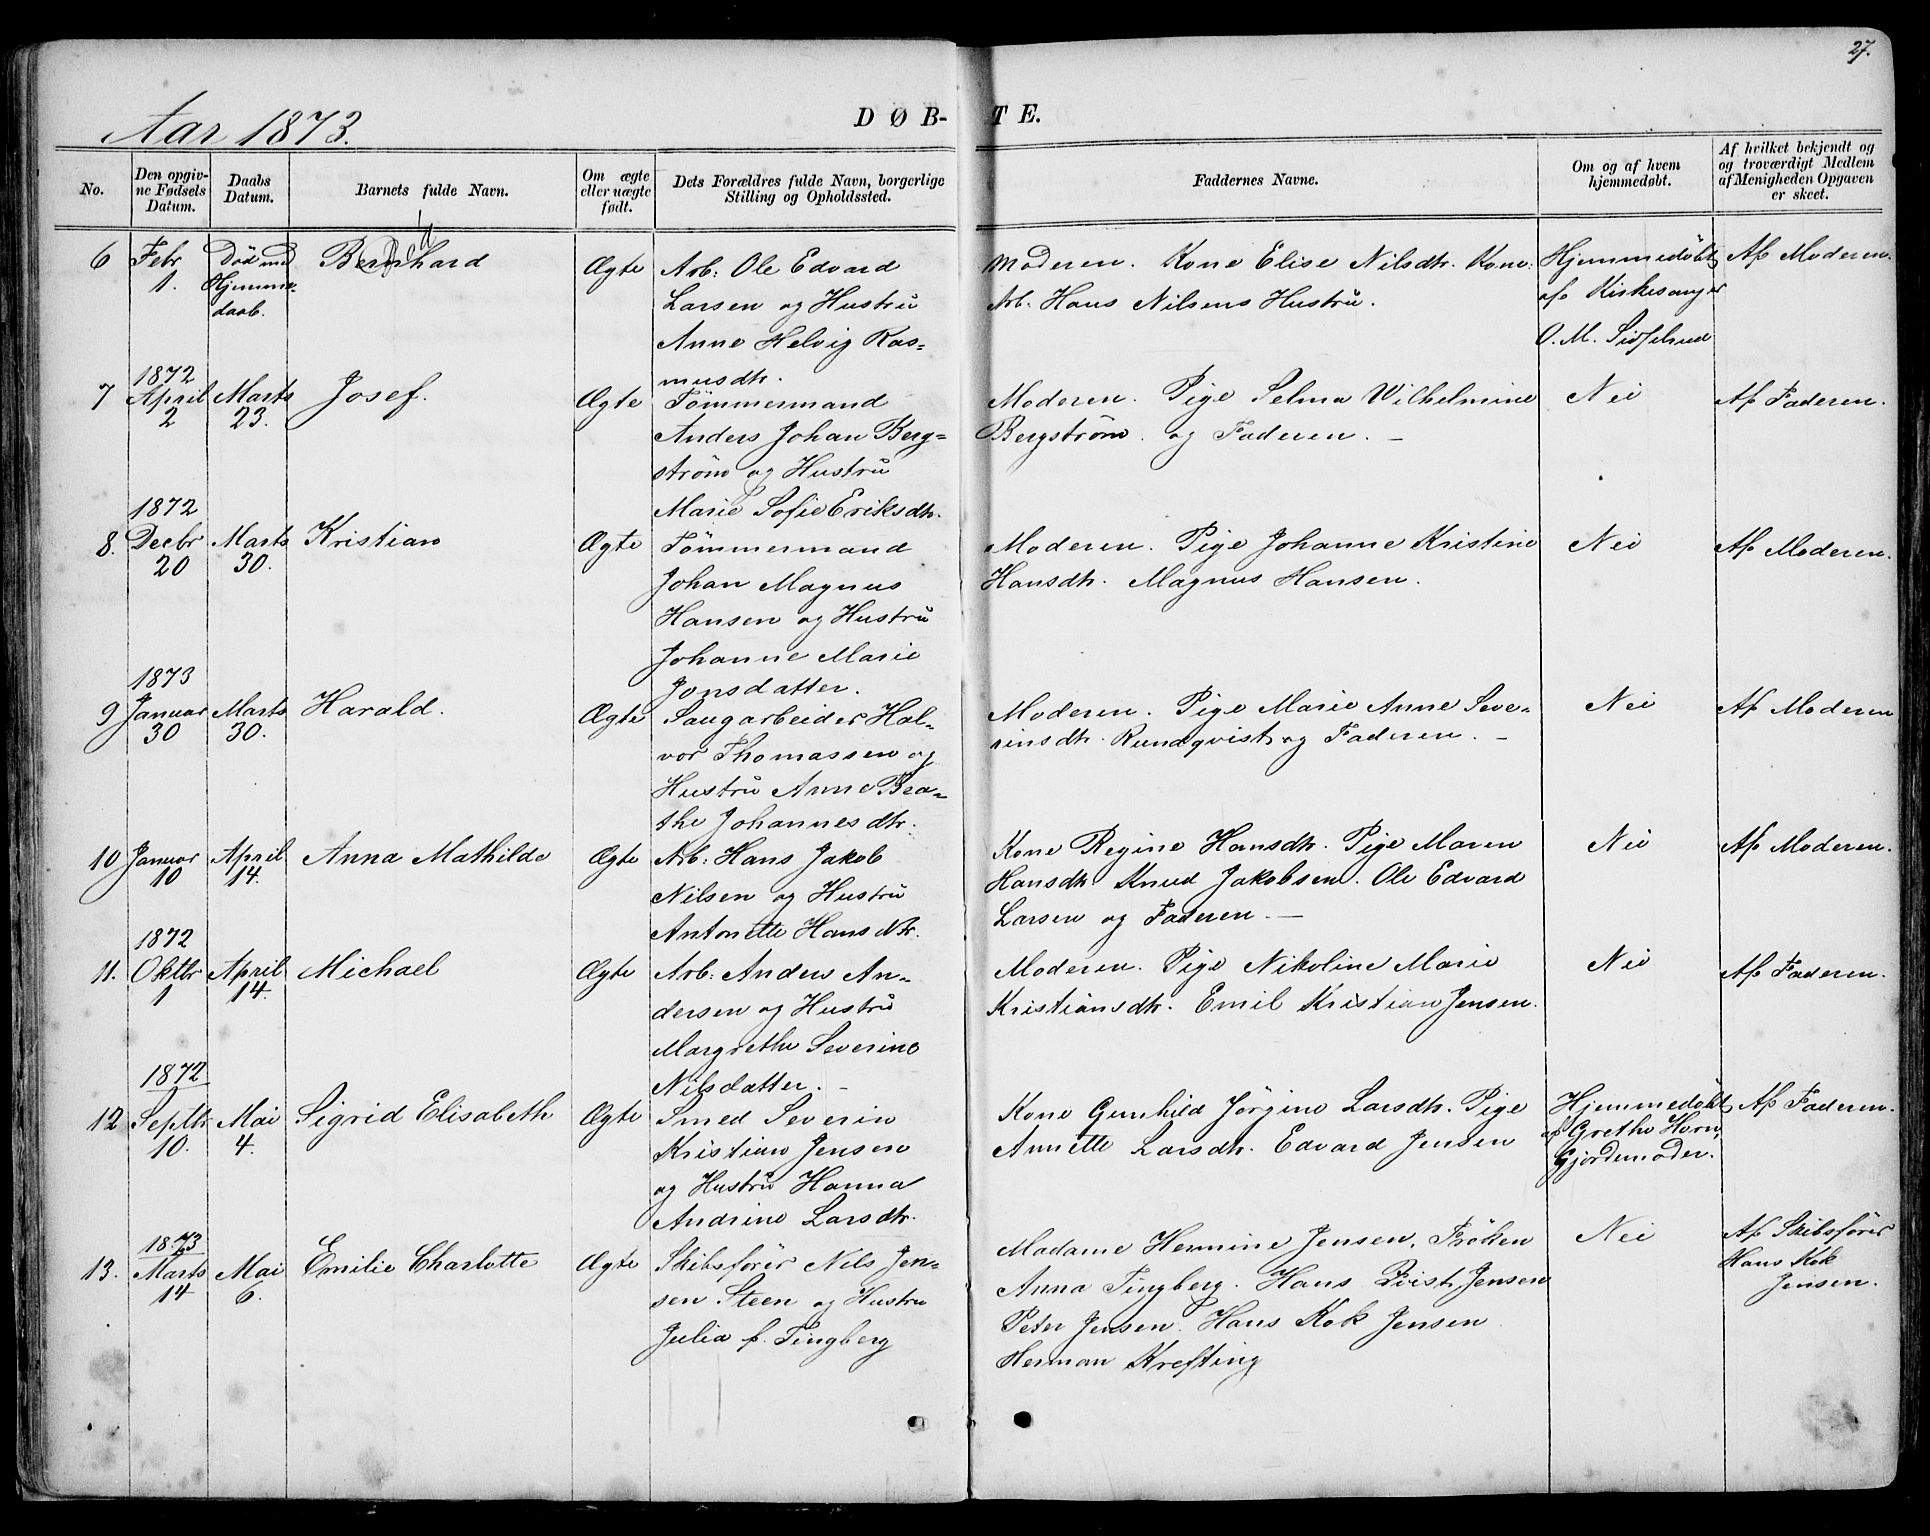 27.
Aar 1873.
DØB- TE.
No.
Den opgiv-
ne Fødsels
Datum.
Daabs
Datum.
Barnets fulde Navn.
Om ægte
eller uægte
født.
Dets Forældres fulde Navn, borgerlige
Stilling og Opholdssted.
Faddernes Navne.
Om og af hvem
hjemmedøbt.
Af hvilket bekjendt og
og troværdigt Medlem
af Menigheden Opgaven
er skeet.
6 Febr 1. Död med Hjemme-daab. Bernhard Ægte
Arb: Ole Edvard
Larsen og Hustru
Anne Helvig Ras=
musdtr.
Moderen. Kone Elise Nilsdtr. Kone:
Arb. Hans Nilsens Hustru.
Hjemmedøbt
af Kirkesanger
O. M.
Af Moderen.
7 1872 April 2 Marts 23. Josef. Ægte
Tömmermand
Anders Johan Berg=
ström og Hustru
Marie Sofie Eriksdtr.
Moderen. Pige Selma Wilhelmine
Bergström. og Faderen. —
Nei
Af Faderen.
8. 1872 Decbr 20 Marts 30. Kristian Ægte
Tömmermand
Johan Magnus
Hansen og Hustru
Johanne Marie
Jonsdatter.
Moderen. Pige Johanne Kristine
Hansdtr. Magnus Hansen.
Nei
Af Moderen.
9 1873 Januar 30 Marts 30. Harald. Ægte
Saugarbeider Hal=
vor Thomassen og
Hustru Anne Bea=
the Johannesdtr.
Moderen. Pige Marie Anne Seve-
rinsdtr. Rundqvist og Faderen. —
Nei
Af Moderen
10 Januar 10 April 14. Anna Mathilde Ægte
Arb: Hans Jakob
Nilsen og Hustru
Antonette Hansdtr.
Kone Regine Hansdtr. Pige Maren
Hansdtr. Knud Jakobsen. Ole Edvard
Larsen og Faderen. —
Nei
Af Moderen.
11. 1872 Oktbr 1 April 14. Michael Ægte
Arb: Anders An=
dersen og Hustru
Margrethe Severine
Nilsdatter. —
Moderen. Pige Nikoline Marie
Kristiansdtr. Emil Kristian Jensen.
Nei
Af Faderen.
12 1872 Septbr 10. Mai 4. Sigrid Elisabeth Ægte
Smed Severin
Kristian Jensen
og Hustru Hanna
Andrine Larsdtr.
Kone Gunhild Jørgine Larsdtr. Pige
Annette Larsdtr. Edvard Jensen
Hjemmedøbt
af Grethe Horn,
Gjordemoder.
Af Faderen.
13. 1873 Marts 14 Mai 6. Emilie Charlotte Ægte
Skibsfører Nils Jen=
sen Steen og Hustru
Julia f. Tingberg
Madame Hermine Jensen. Fröken
Anna Tingberg. Hans Jensen
Peter Jensen. Hans Kok Jensen.
Herman Krefting
Nei
Af Skibsfører
Hans Kok
Jensen.